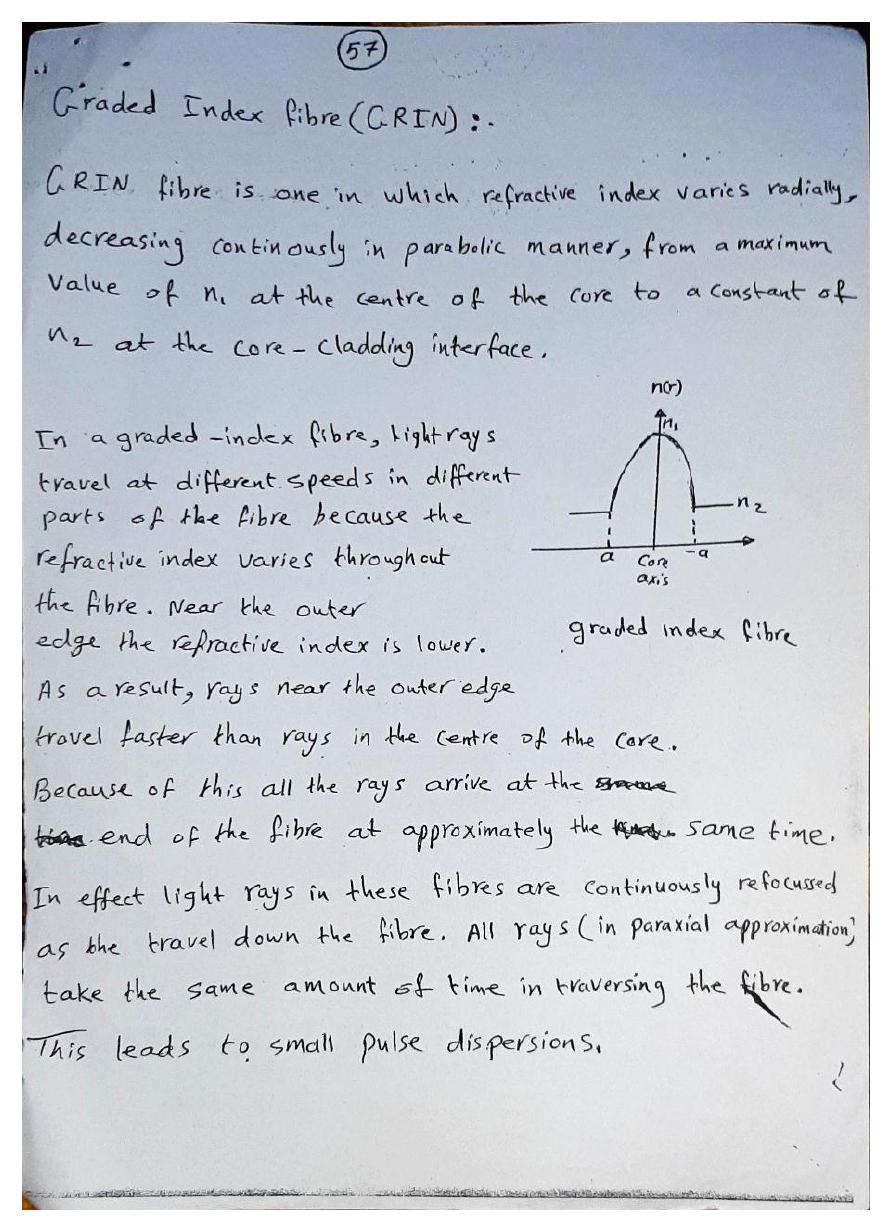 57
Graded Index fibre (GRIN) :-
GRIN fibre is one in which refractive index varies radially,
decreasing continously in parabolic manner, from a maximum
Value of n1 at the centre of the core to a constant of
n2 at the core - cladding interface.
n(r)
n1
n2
a
Core
axis
-a
graded index fibre
In a graded -index fibre, light rays
travel at different speeds in different
parts of the fibre because the
refractive index varies throughout
the fibre. Near the outer
edge the refractive index is lower.
As a result, rays near the outer edge
travel faster than rays in the centre of the core.
Because of this all the rays arrive at the
end of the fibre at approximately the same time.
In effect light rays in these fibres are continuously refocussed
as the travel down the fibre. All rays (in paraxial approximation)
take the same amount of time in traversing the fibre.
This leads to small pulse dispersions.